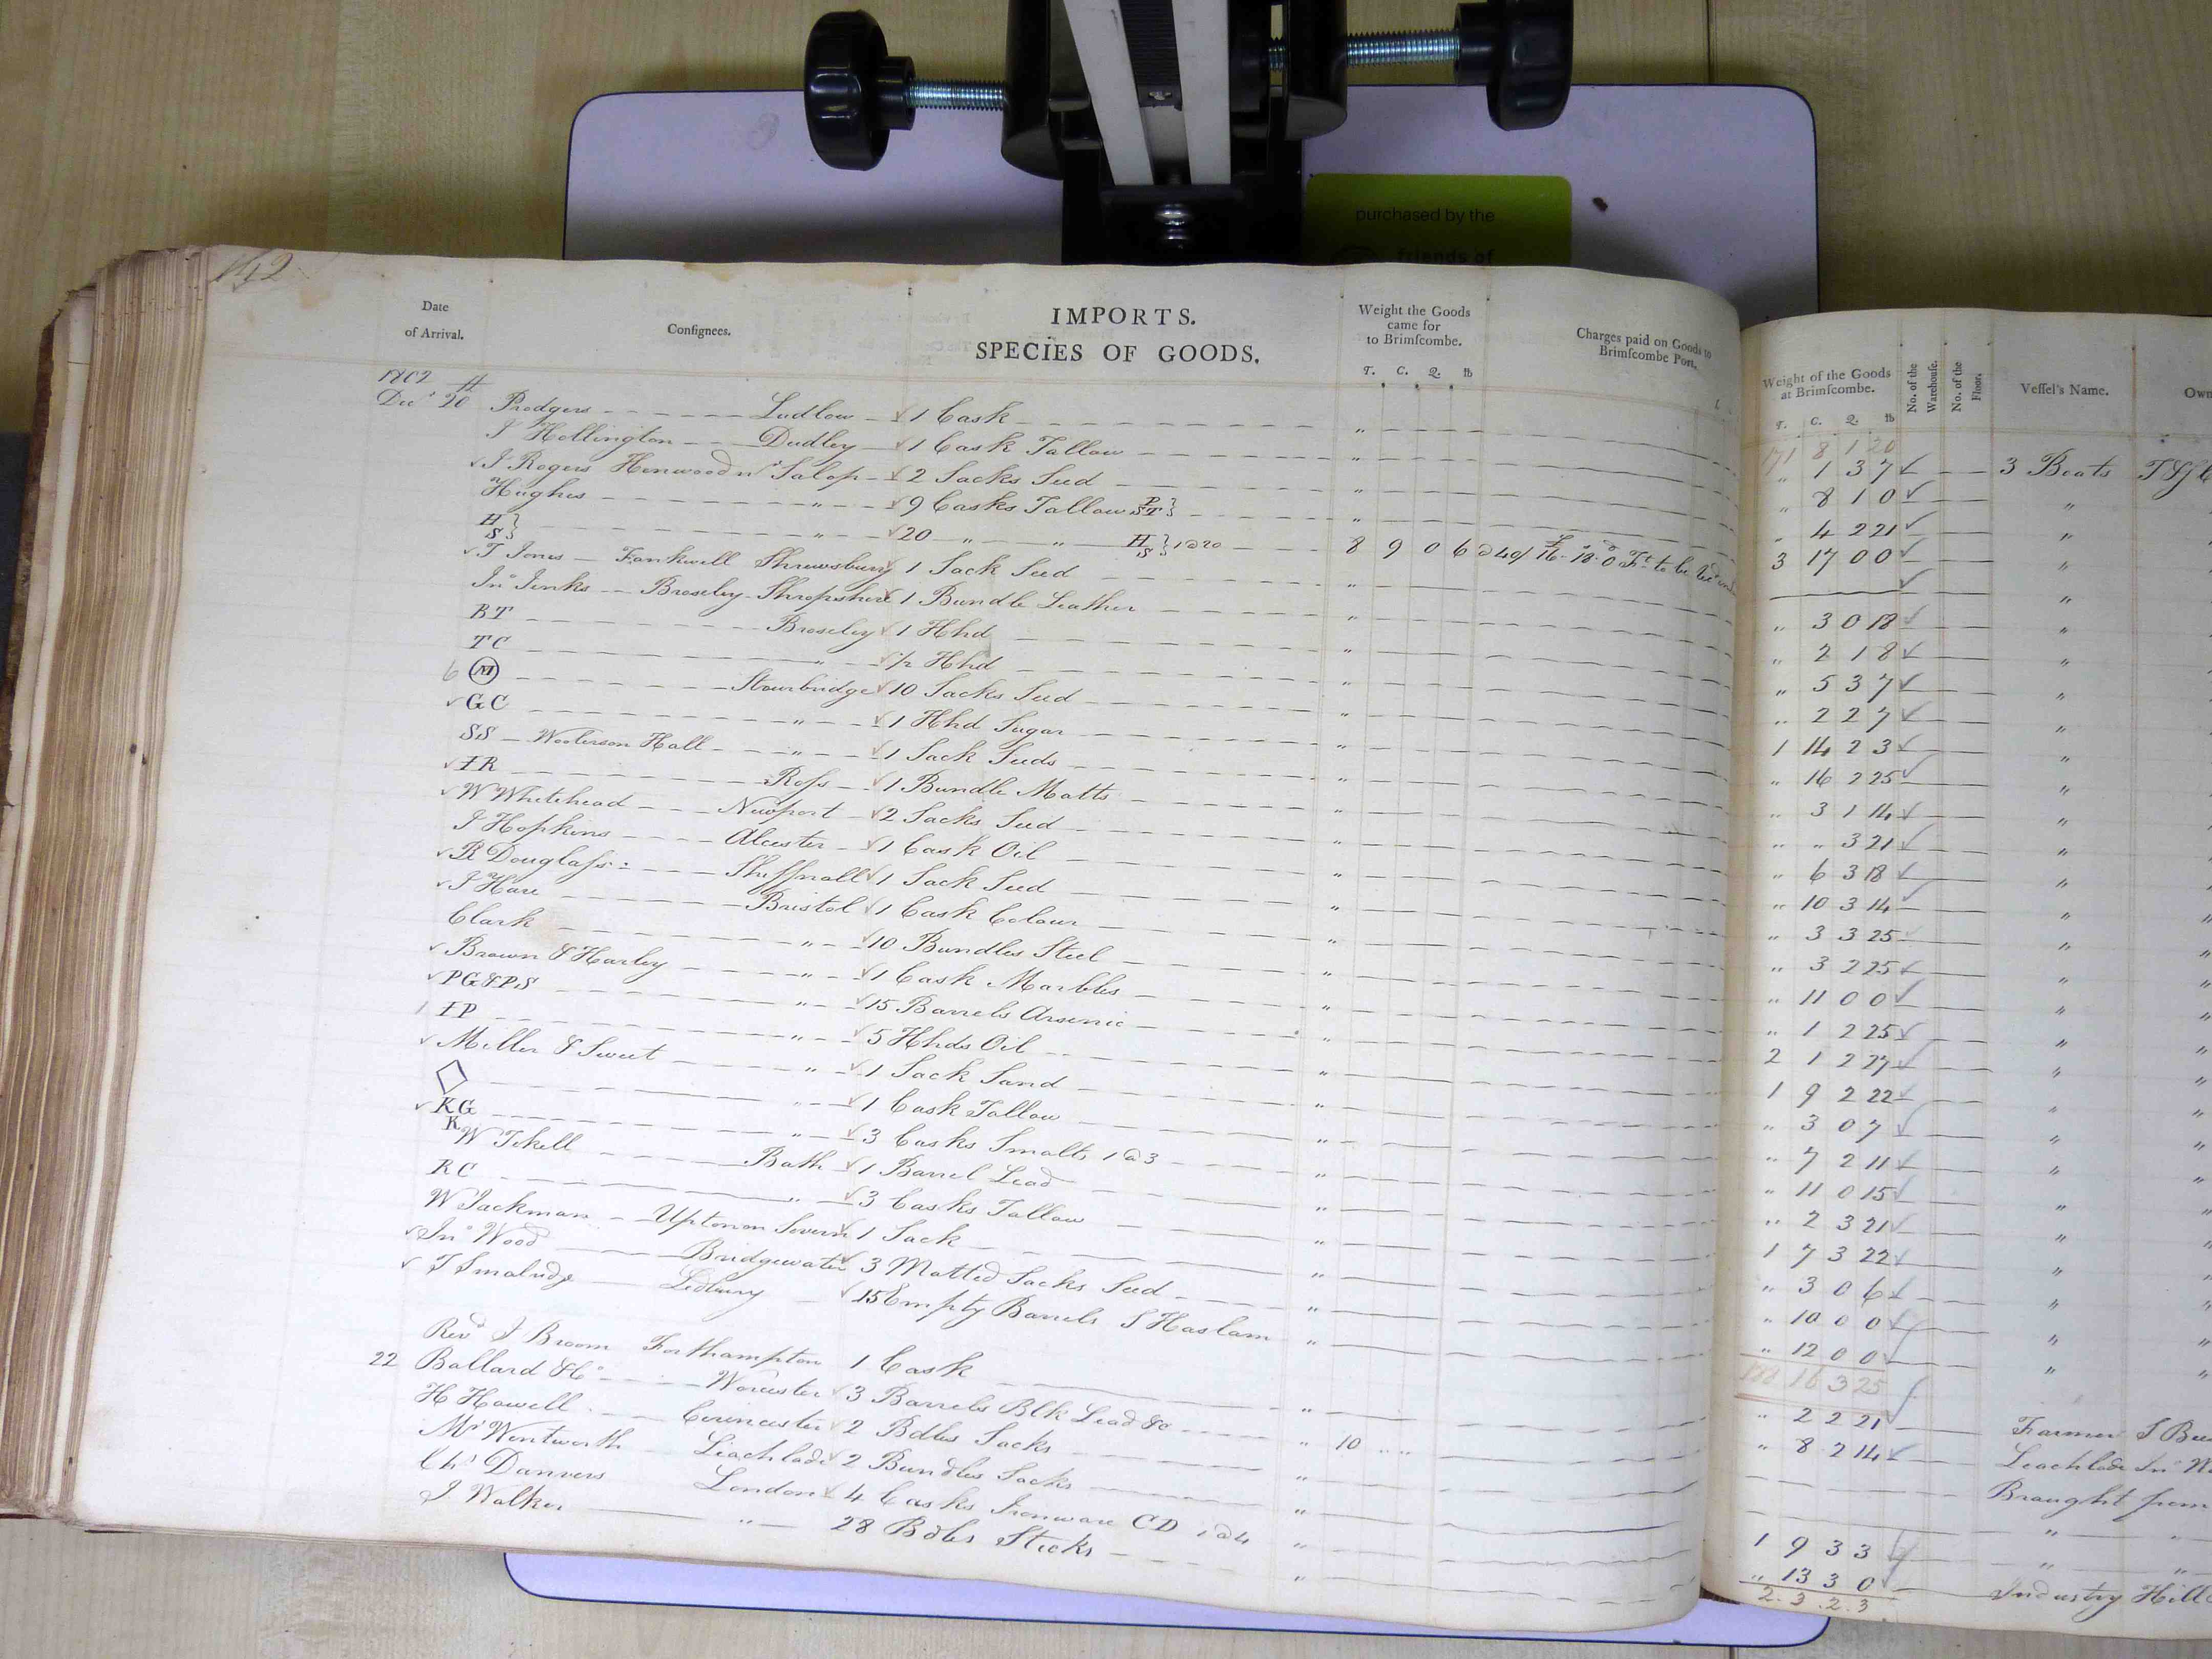 purchased by the
friends of
142
Date of Arrival. Consignees. IMPORTS. SPECIES OF GOODS. Weight the Goods came for to Brimscombe. T. C. Q. lb Charges paid on Goods to Brimscombe Port. Weight of the Goods at Brimscombe. T. C. Q. lb No. of the Warehouse. No. of the Floor. Vessel's Name. Own
1802
171 8 1 20
Decr 20 Prodgers Ludlow 1 Cask " " 1 3 7 3 Boats
J Hollington Dudley 1 Cask Tallow " " 8 1 0 "
J Rogers Salop 2 Sacks Seed " " 4 2 21 "
Hughes " 9 Casks Tallow " 3 17 0 0 "
H S } " 20 " " H S } 1 @ 20 8 9 0 6 @ 40/ 16 18 0 Ft to be "
T Jones Frankwell Shrewsbury 1 Sack Seed " " 3 0 18 "
Jno Jenks Broseley Shropshire 1 Bundle Leather " " 2 1 8 "
BT Broseley 1 Hhd " " 5 3 7 "
TC " 1/2 Hhd " " 2 2 7 "
6 M Stourbridge 10 Sacks Seed " 1 14 2 3 "
GC " 1 Hhd Sugar " " 16 2 25 "
SS Hall " 1 Sack Seeds " " 3 1 14 "
IR Ross 1 Bundle Matts " " " 3 21 "
W Whitehead Newport 2 Sacks Seed " " 6 3 18 "
J Hopkins Alcester 1 Cask Oil " " 10 3 14 "
R Douglass Shiffnall 1 Sack Seed " " 3 3 25 "
J Hare Bristol 1 Cask Colour " " 3 2 25 "
Clark " 10 Bundles Steel " " 11 0 0 "
Brown & Harley " 1 Cask Marbles " " 1 2 25 "
PG&PS " 15 Barrels Arsenic " 2 1 2 27 "
1 IP " 5 Hhds Oil " 1 9 2 22 "
Miller & Sweet " 1 Sack Sand " " 3 0 7 "
" 1 Cask Tallow " " 7 2 11 "
KG K " 3 Casks Smalts 1 @ 3 " " 11 0 15 "
W Tikell Bath 1 Barrel Lead " " 2 3 21 "
RC " 3 Casks Tallow " 1 7 3 22 "
W Jackman Upton on Severn 1 Sack " " 3 0 6 "
Jno Wood Bridgewater 3 Matted Sacks Seed " " 10 0 0 "
T Smalridge Ledbury 15 Empty Barrels S Haslam " " 12 0 0 "
16 3 25
Revd J Broom Forthampton 1 Cask " 2 2 21 Farmer
22 Ballard & Co Worcester 3 Barrels Blk Lead &c " " 8 2 14 Leachlade Jno
H Howell Cirencester 2 Bdles Sacks " 10 " " Brought from
Mr Wentworth Leachlade 2 Bundles Sacks " "
Chs Danvers London 4 Casks Ironware CD 1 @ 4 " 1 9 3 3 "
J Walker " 28 Bdles Sticks " " 13 3 0 Industry
2 . 3 . 2 . 3